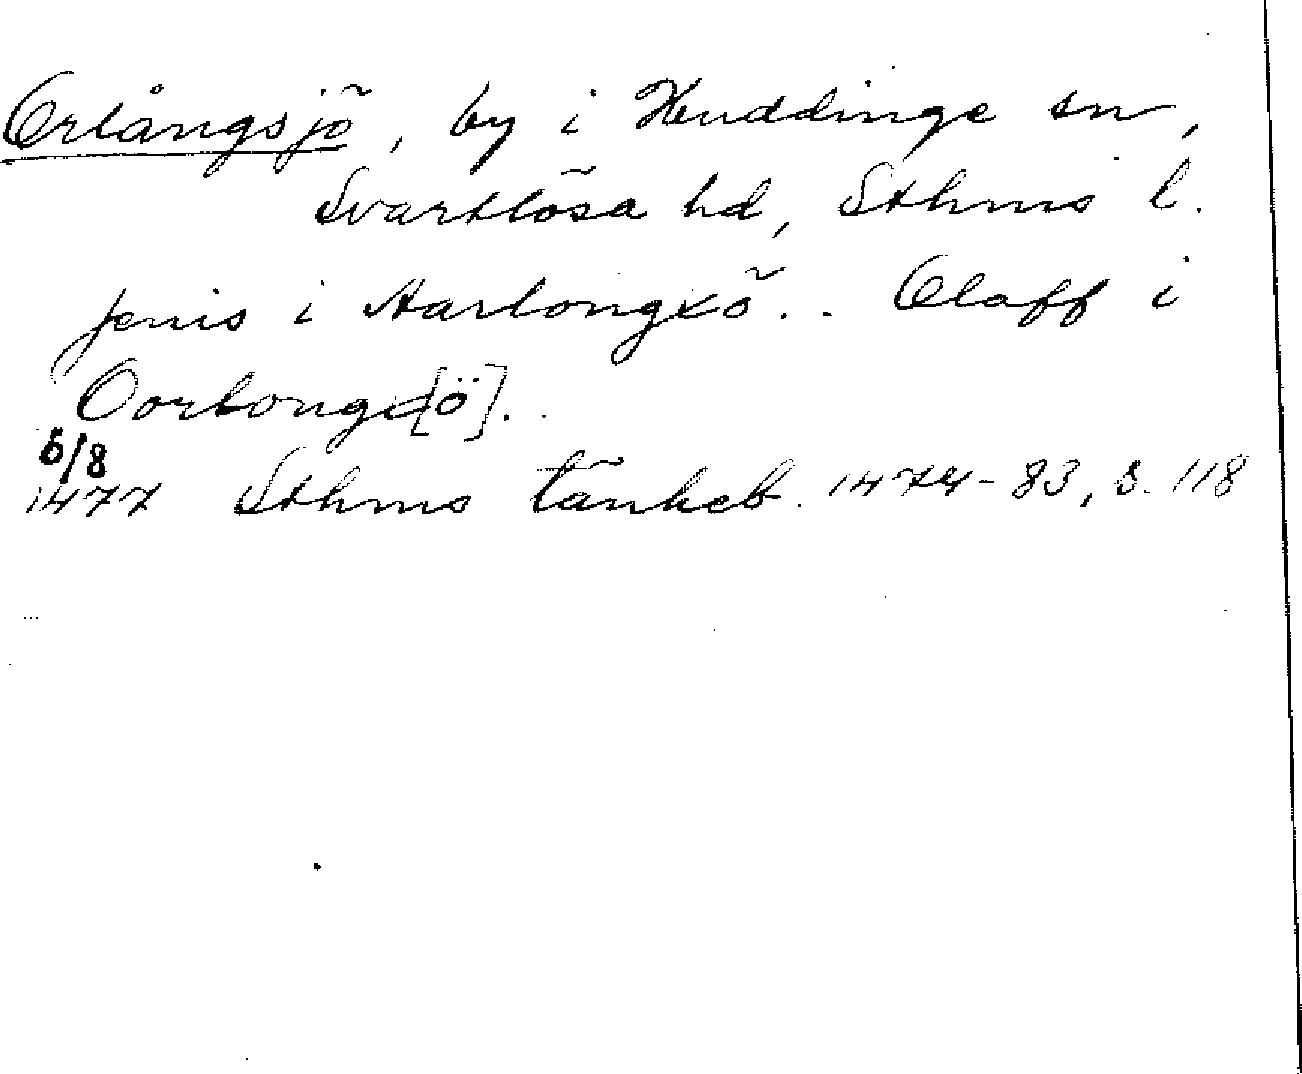 Orlångsjö, by i Huddinge sn,
Svartlösa hd, Sthms l.
jenis i Aarlongxö.. Olaff i
Oorlongx[ö]..
6/8
1477 Sthms tänkeb. 1474-83, s. 118